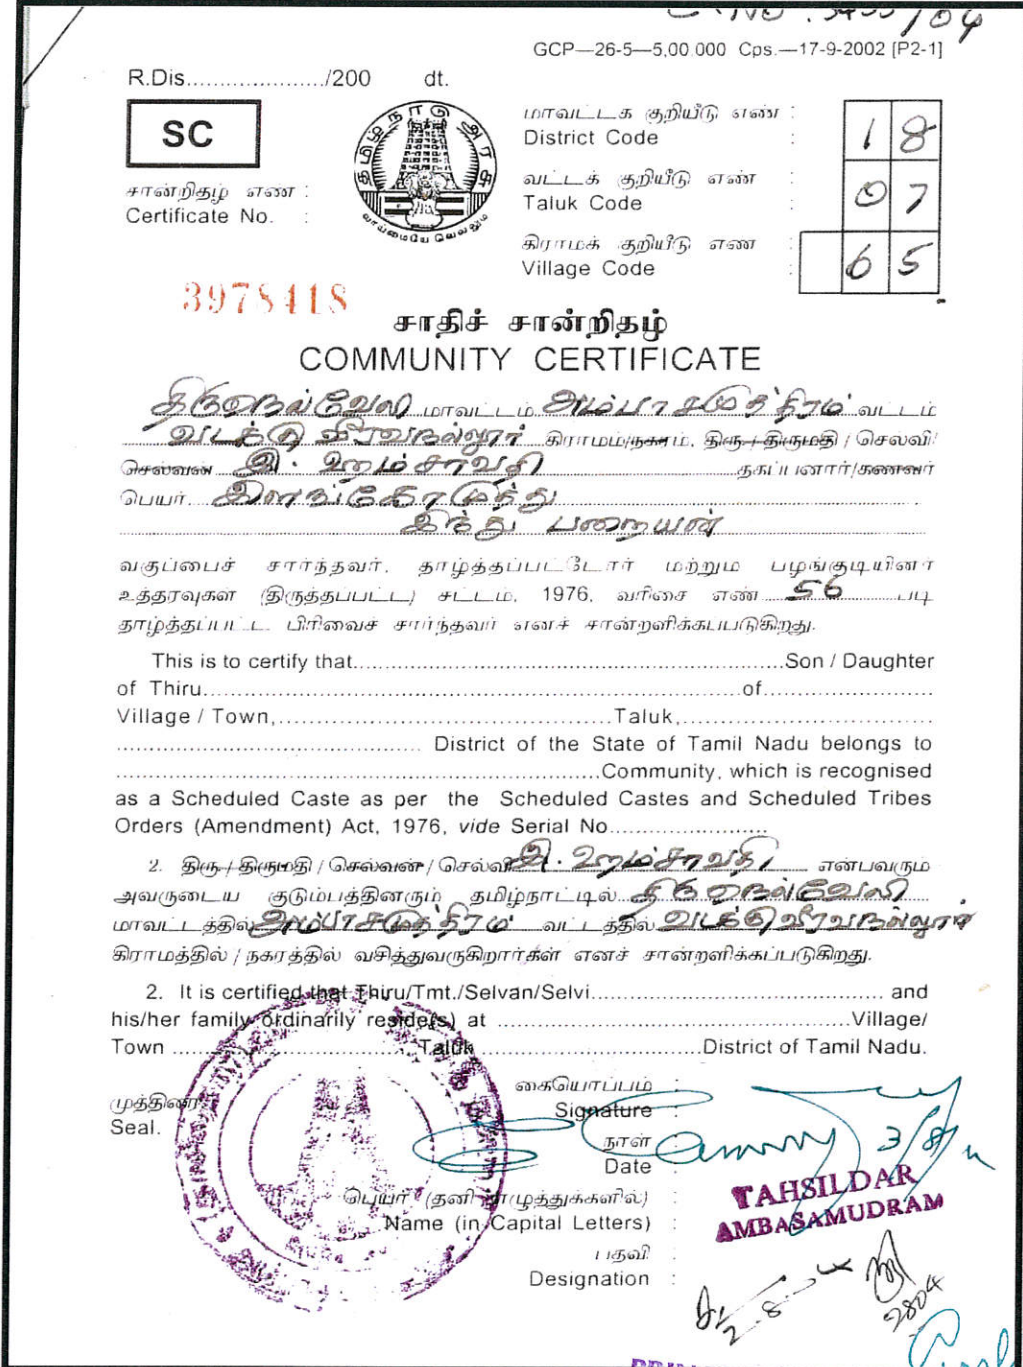 GCP—26-5—5,00.000 Cps.—17-9-2002 [P2-1]
R.Dis...................../200 dt.
SC
தமிழ்நாடு அரசு
வாய்மையே வெல்லும்
மாவட்டக் குறியீடு எண் :
District Code : 18
வட்டக் குறியீடு எண் :
Taluk Code : 07
கிராமக் குறியீடு எண் :
Village Code : 65
சான்றிதழ் எண் :
Certificate No. :
3978418
சாதிச் சான்றிதழ்
COMMUNITY CERTIFICATE
திருநெல்வேலி மாவட்டம் அம்பாசமுத்திரம் வட்டம்
வடக்கு வீரவநல்லூர் கிராமம்/நகரம், திரு / திருமதி / செல்வி/
செல்வன் இ. ஹம்சாவதி தகப்பனார்/கணவர்
பெயர் இளங்கோமுத்து
இந்து பறையன்
வகுப்பைச் சார்ந்தவர். தாழ்த்தப்பட்டோர் மற்றும் பழங்குடியினர்
உத்தரவுகள் (திருத்தப்பட்ட) சட்டம், 1976, வரிசை எண் 56 படி
தாழ்த்தப்பட்ட பிரிவைச் சார்ந்தவர் எனச் சான்றளிக்கப்படுகிறது.
This is to certify that....................Son / Daughter
of Thiru....................of....................
Village / Town,....................Taluk,....................
.................... District of the State of Tamil Nadu belongs to
....................Community, which is recognised
as a Scheduled Caste as per the Scheduled Castes and Scheduled Tribes
Orders (Amendment) Act, 1976, vide Serial No....................
2. திரு / திருமதி / செல்வன் / செல்வி இ. ஹம்சாவதி என்பவரும்
அவருடைய குடும்பத்தினரும் தமிழ்நாட்டில் திருநெல்வேலி
மாவட்டத்தில் அம்பாசமுத்திரம் வட்டத்தில் வடக்கு வீரவநல்லூர்
கிராமத்தில் / நகரத்தில் வசித்துவருகிறார்கள் எனச் சான்றளிக்கப்படுகிறது.
2. It is certified that Thiru/Tmt./Selvan/Selvi.................... and
his/her family ordinarily reside(s) at ....................Village/
Town ....................Taluk....................District of Tamil Nadu.
கையொப்பம் :
முத்திரை
Signature :
Seal.
நாள் :
Date
TAHSILDAR
AMBASAMUDRAM
பெயர் (தனி எழுத்துக்களில்) :
Name (in Capital Letters) :
பதவி :
Designation :